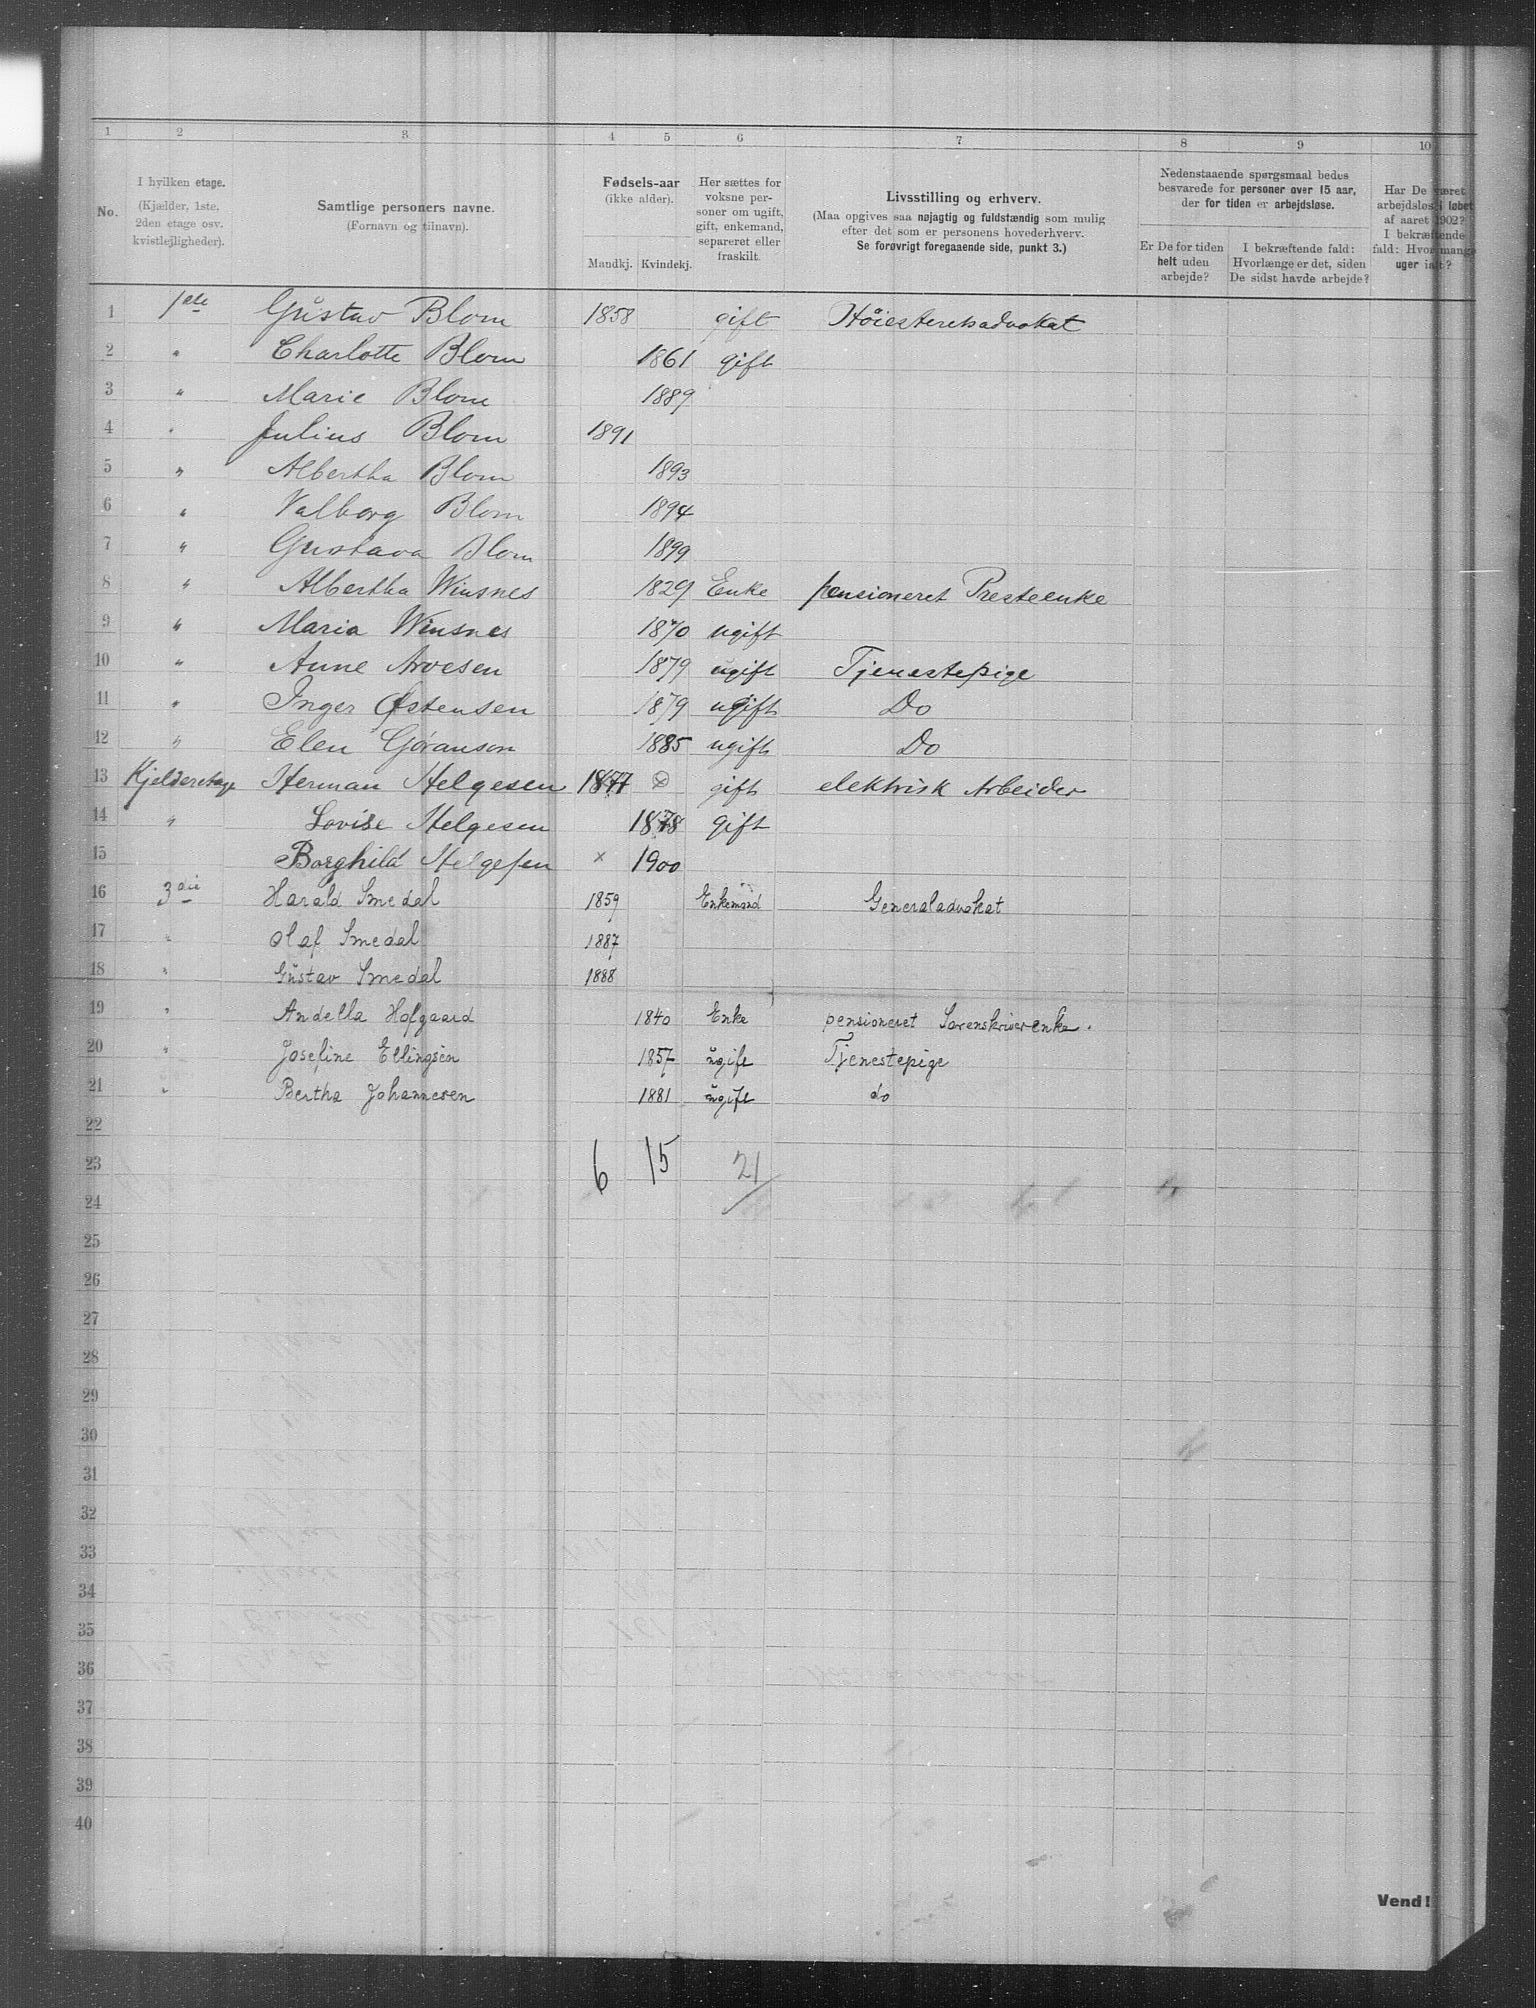 1 2 3 4 5 6 7 8 9 10
No.
I hvilken etage.
(Kjælder, 1ste,
2den etage osv.
kvistlejligheder).
Samtlige personers navne.
(Fornavn og tilnavn).
Fødsels-aar
(ikke alder).
Mandkj. Kvindekj.
Her sættes for
voksne per-
soner om ugift,
gift, enkemand,
separeret eller
fraskilt.
Livsstilling og erhverv.
(Maa opgives saa nøjagtig og fuldstændig som mulig
efter det som er personens hovederhverv.
Se forøvrigt foregaaende side, punkt 3.)
Nedenstaaende spørgsmaal bedes
besvarede for personer over 15 aar,
der for tiden er arbejdsløse.
Er De for tiden
helt uden
arbejde?
I bekræftende fald:
Hvorlænge er det, siden
De sidst havde arbejde?
Har De været
arbejdsløs i løbet
af aaret 1902?
I bekræftende
fald: Hvor mange
uger ialt?
1 1ste Gustav Blom 1858 gift Høiesteretsadvokat
2 " Charlotte Blom 1861 gift
3 " Marie Blom 1889
4 " Julius Blom 1891
5 " Albertha Blom 1893
6 " Valborg Blom 1894
7 " Gustava Blom 1899
8 " Albertha Winsnes 1829 Enke pensioneret Presteenke
9 " Maria Winsnes 1870 ugift
10 " Anne Arvesen 1879 ugift Tjenestepige
11 " Inger Østensen 1879 ugift Do
12 " Elen Gøranson 1885 ugift Do
13 Kjelderetage Herman Helgesen 1877 gift elektrisk Arbeider
14 " Lovise Helgesen 1878 gift
15 Borghild Helgesen × 1900
16 3die Harald Smedal 1859 Enkemand Generaladvokat
17 " Olaf Smedal 1887
18 " Gustav Smedal 1888
19 " Andella Hofgaard 1840 Enke pensioneret Sorenskriverenke.
20 " Josefine Ellingsen 1857 ugift Tjenestepige
21 " Bertha Johannesen 1881 ugift do
22
23 6 15 21
24
25
26
27
28
29
30
31
32
33
34
35
36
37
38
39
40
Vend!